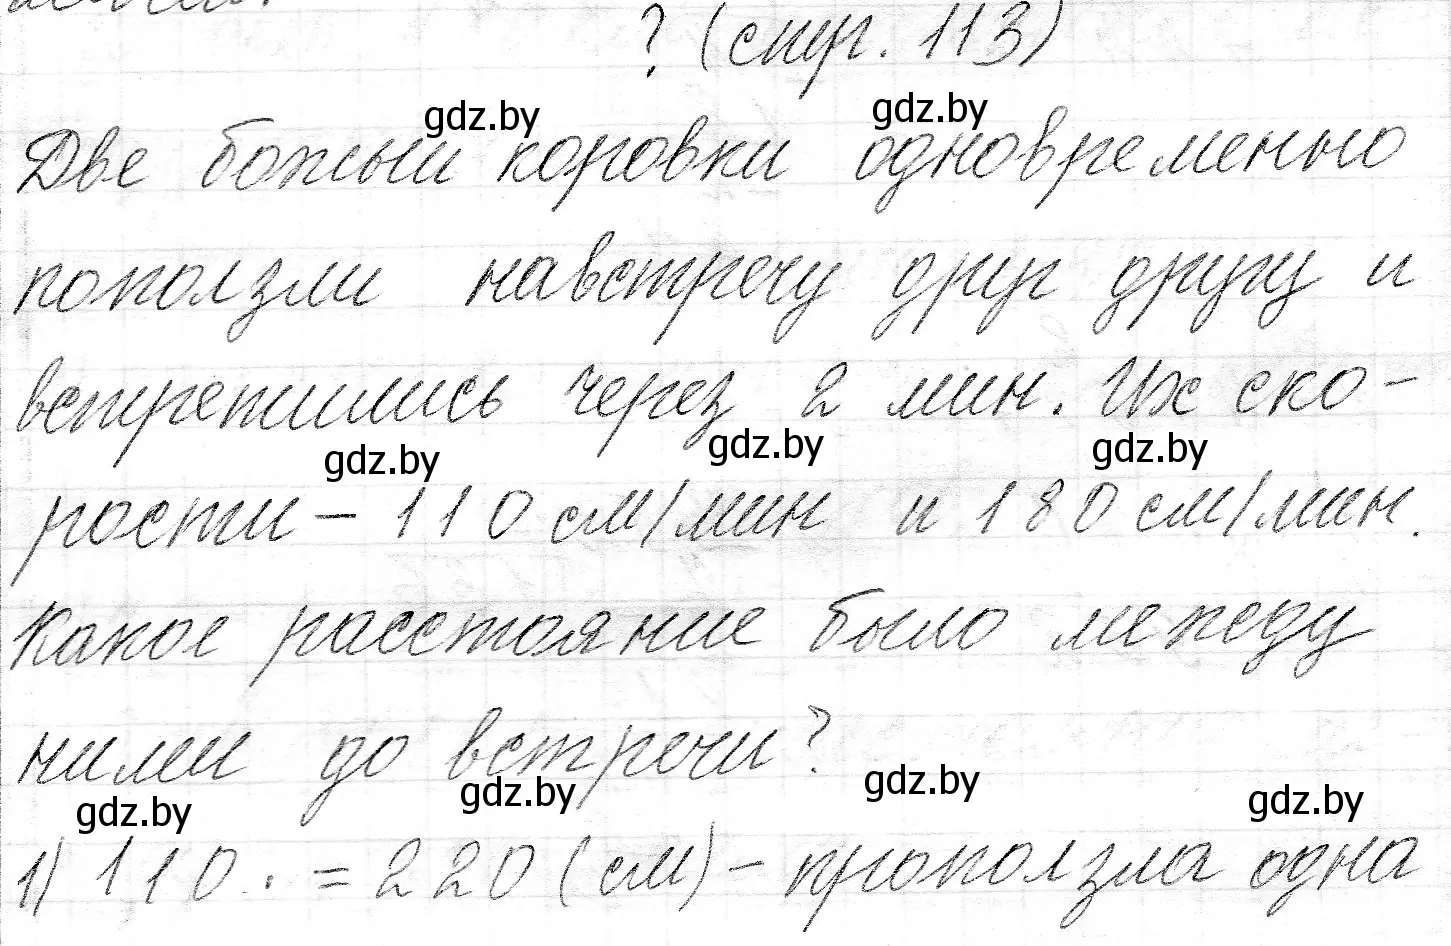 ? (стр. 113)
gdz.by gdz.by
Две божьи коровки одновременно
поползли навстречу друг другу и
встретились через 2 мин. Их ско-
gdz.by gdz.by gdz.by
рости - 110 см/мин и 180 см/мин.
Какое расстояние было между
ними до встречи?
gdz.by gdz.by gdz.by gdz.by
1) 110 · = 220 (см) - проползла одна